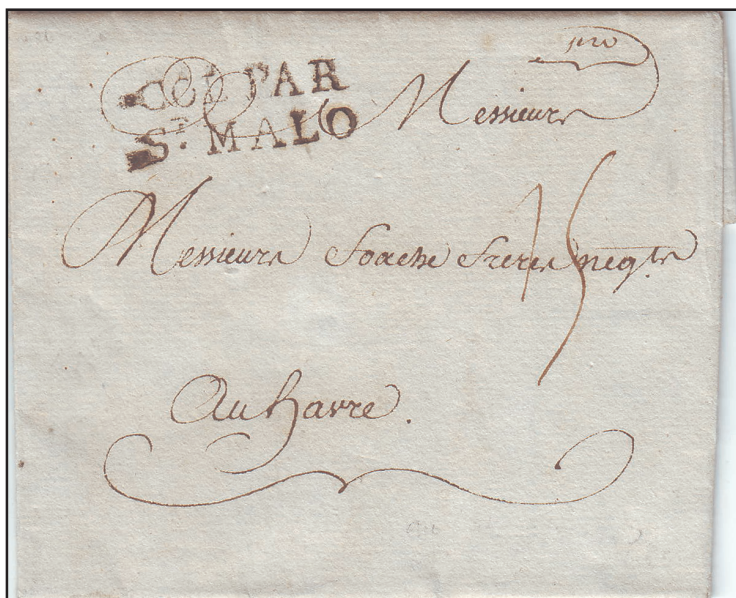 COL PAR
St. MALO
pro
Messieurs
Messieurs foache freres negts
15
Au havre.